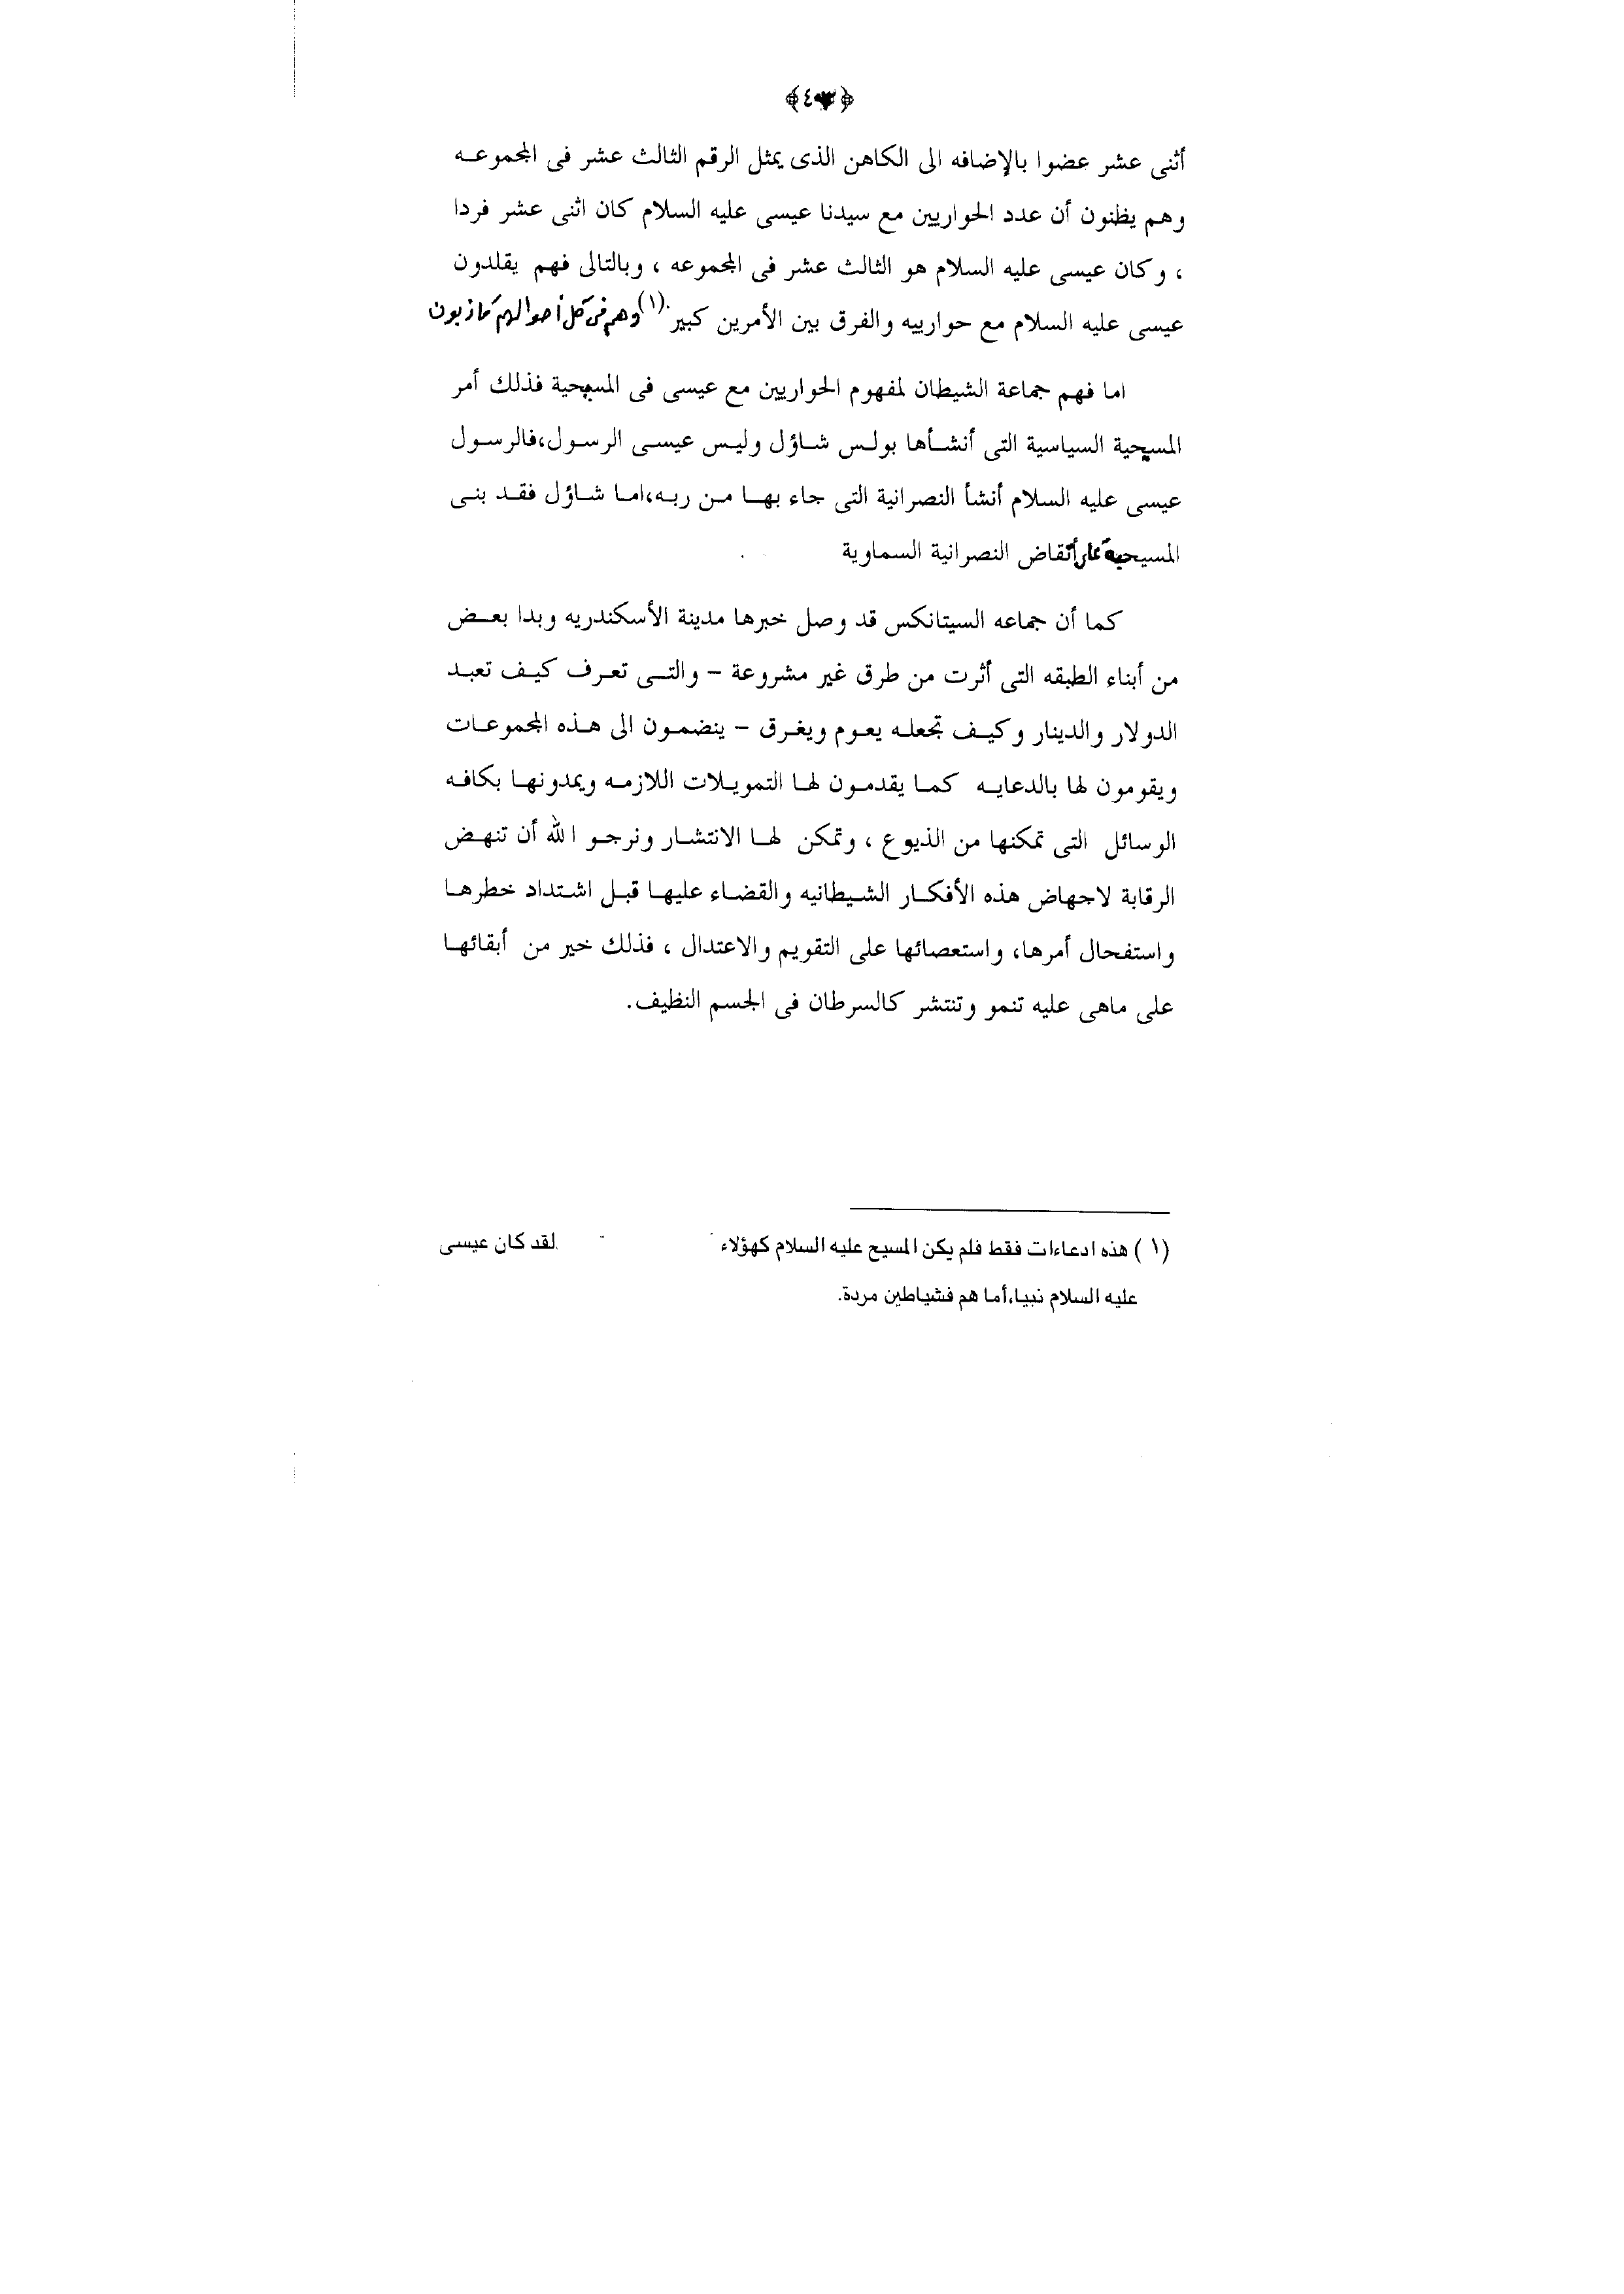 أثنى عشر عضوا بالإضافه الى الكاهن الذى يمثل الرقم الثالث عشر فى المجموعـه
وهم يظنون أن عدد الحواريين مع سيدنا عيسى عليه السلام كان اثنى عشر فردا
، وكان عيسى عليه السلام هو الثالث عشر فى المجموعه ، وبالتالى فهم يقلدون
عيسى عليه السلام مع حوارييه والفرق بين الأمرين كبير.(١) وهم فى كل أحوالهم كاذبون
اما فهم جماعة الشيطان لمفهوم الحواريين مع عيسى فى المسيحية فذلك أمر
المسيحية السياسية التى أنشـأها بولـس شـاؤل وليـس عيسـى الرسـول،فالرسـول
عيسى عليه السلام أنشأ النصرانية التى جاء بهـا مـن ربـه،امـا شـاؤل فقـد بنـى
المسيحية على أنقاض النصرانية السماوية
كما أن جماعه السيتانكس قد وصل خبرها مدينة الأسكندريه وبدا بعـض
من أبناء الطبقه التى أثرت من طرق غير مشروعة – والتـى تعـرف كيـف تعبـد
الدولار والدينار وكيـف تجعلـه يعـوم ويغـرق – ينضمـون الى هـذه المجموعـات
ويقومون لها بالدعايـه كمـا يقدمـون لهـا التمويـلات اللازمـه ويمدونهـا بكافـه
الوسائل التى تمكنها من الذيوع ، وتمكن لهـا الانتشـار ونرجـو الله أن تنهـض
الرقابة لاجهاض هذه الأفكـار الشـيطانيه والقضـاء عليهـا قبـل اشـتداد خطرهـا
واستفحال أمرها، واستعصائها على التقويم والاعتدال ، فذلك خير من أبقائهـا
على ماهى عليه تنمو وتنتشر كالسرطان فى الجسم النظيف.
(١) هذه ادعاءات فقط فلم يكن المسيح عليه السلام كهؤلاء لقد كان عيسى
عليه السلام نبيا،أما هم فشياطين مردة.